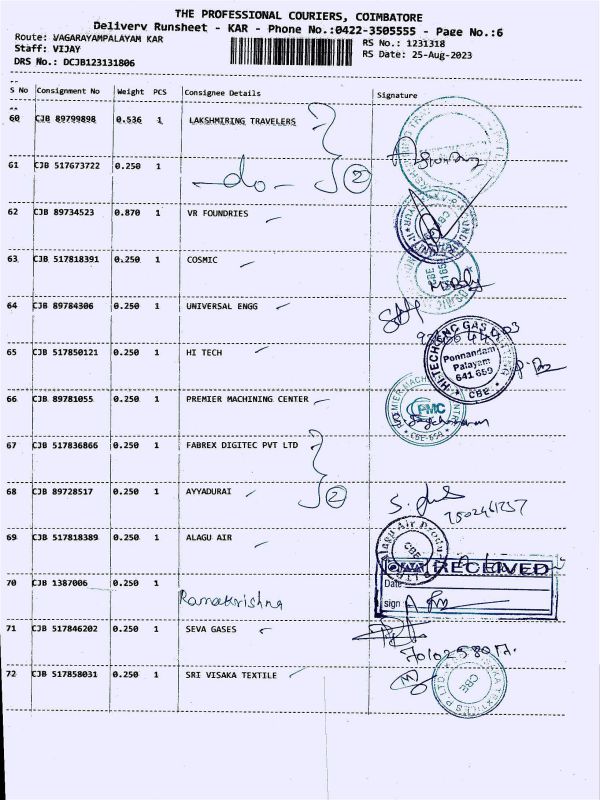 THE PROFESSIONAL COURIERS, COIMBATORE
Delivery Runsheet - KAR - Phone No.:0422-3505555 - Page No.:6
Route: VAGARAYAMPALAYAM KAR
RS No.: 1231318
Staff: VIJAY
RS Date: 25-Aug-2023
DRS No.: DCJB123131806
S No Consignment No Weight PCS Consignee Details Signature
60 CJB 89799898 0.536 1 LAKSHMIRING TRAVELERS
61 CJB 517673722 0.250 1 -do- 2
62 CJB 89734523 0.870 1 VR FOUNDRIES
63 CJB 517818391 0.250 1 COSMIC
64 CJB 89784306 0.250 1 UNIVERSAL ENGG
65 CJB 517850121 0.250 1 HI TECH
HI-TECH CNC GAS
Ponnandam
Palayam
641 659
CBE
66 CJB 89781055 0.250 1 PREMIER MACHINING CENTER
PMC
CBE-659
67 CJB 517836866 0.250 1 FABREX DIGITEC PVT LTD
68 CJB 89728517 0.250 1 AYYADURAI 2
69 CJB 517818389 0.250 1 ALAGU AIR
Alagu Air Produ
CBE
RECEIVED
Date
sign
70 CJB 1387006 0.250 1 Ramakrishna
71 CJB 517846202 0.250 1 SEVA GASES
72 CJB 517858031 0.250 1 SRI VISAKA TEXTILE
CBE